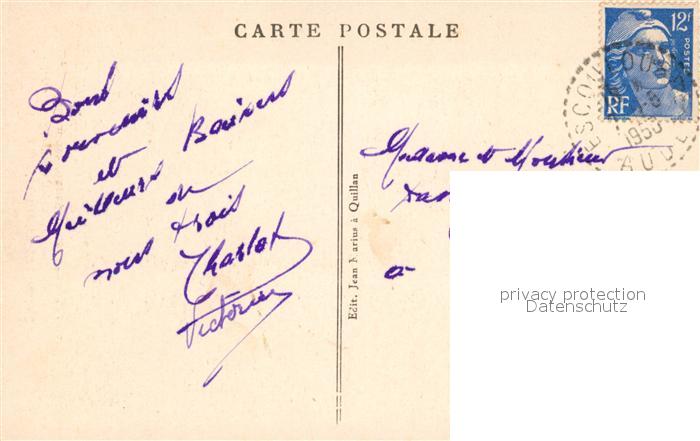 CARTE POSTALE
12F
POSTES
RF
1953
AUDE
Bons
Souvenirs
et Baisers
Meilleurs de
nous trois
Charlot
Victorine
Edit. Jean Marius à Quillan
Madame et Monsieur
à
privacy protection
Datenschutz